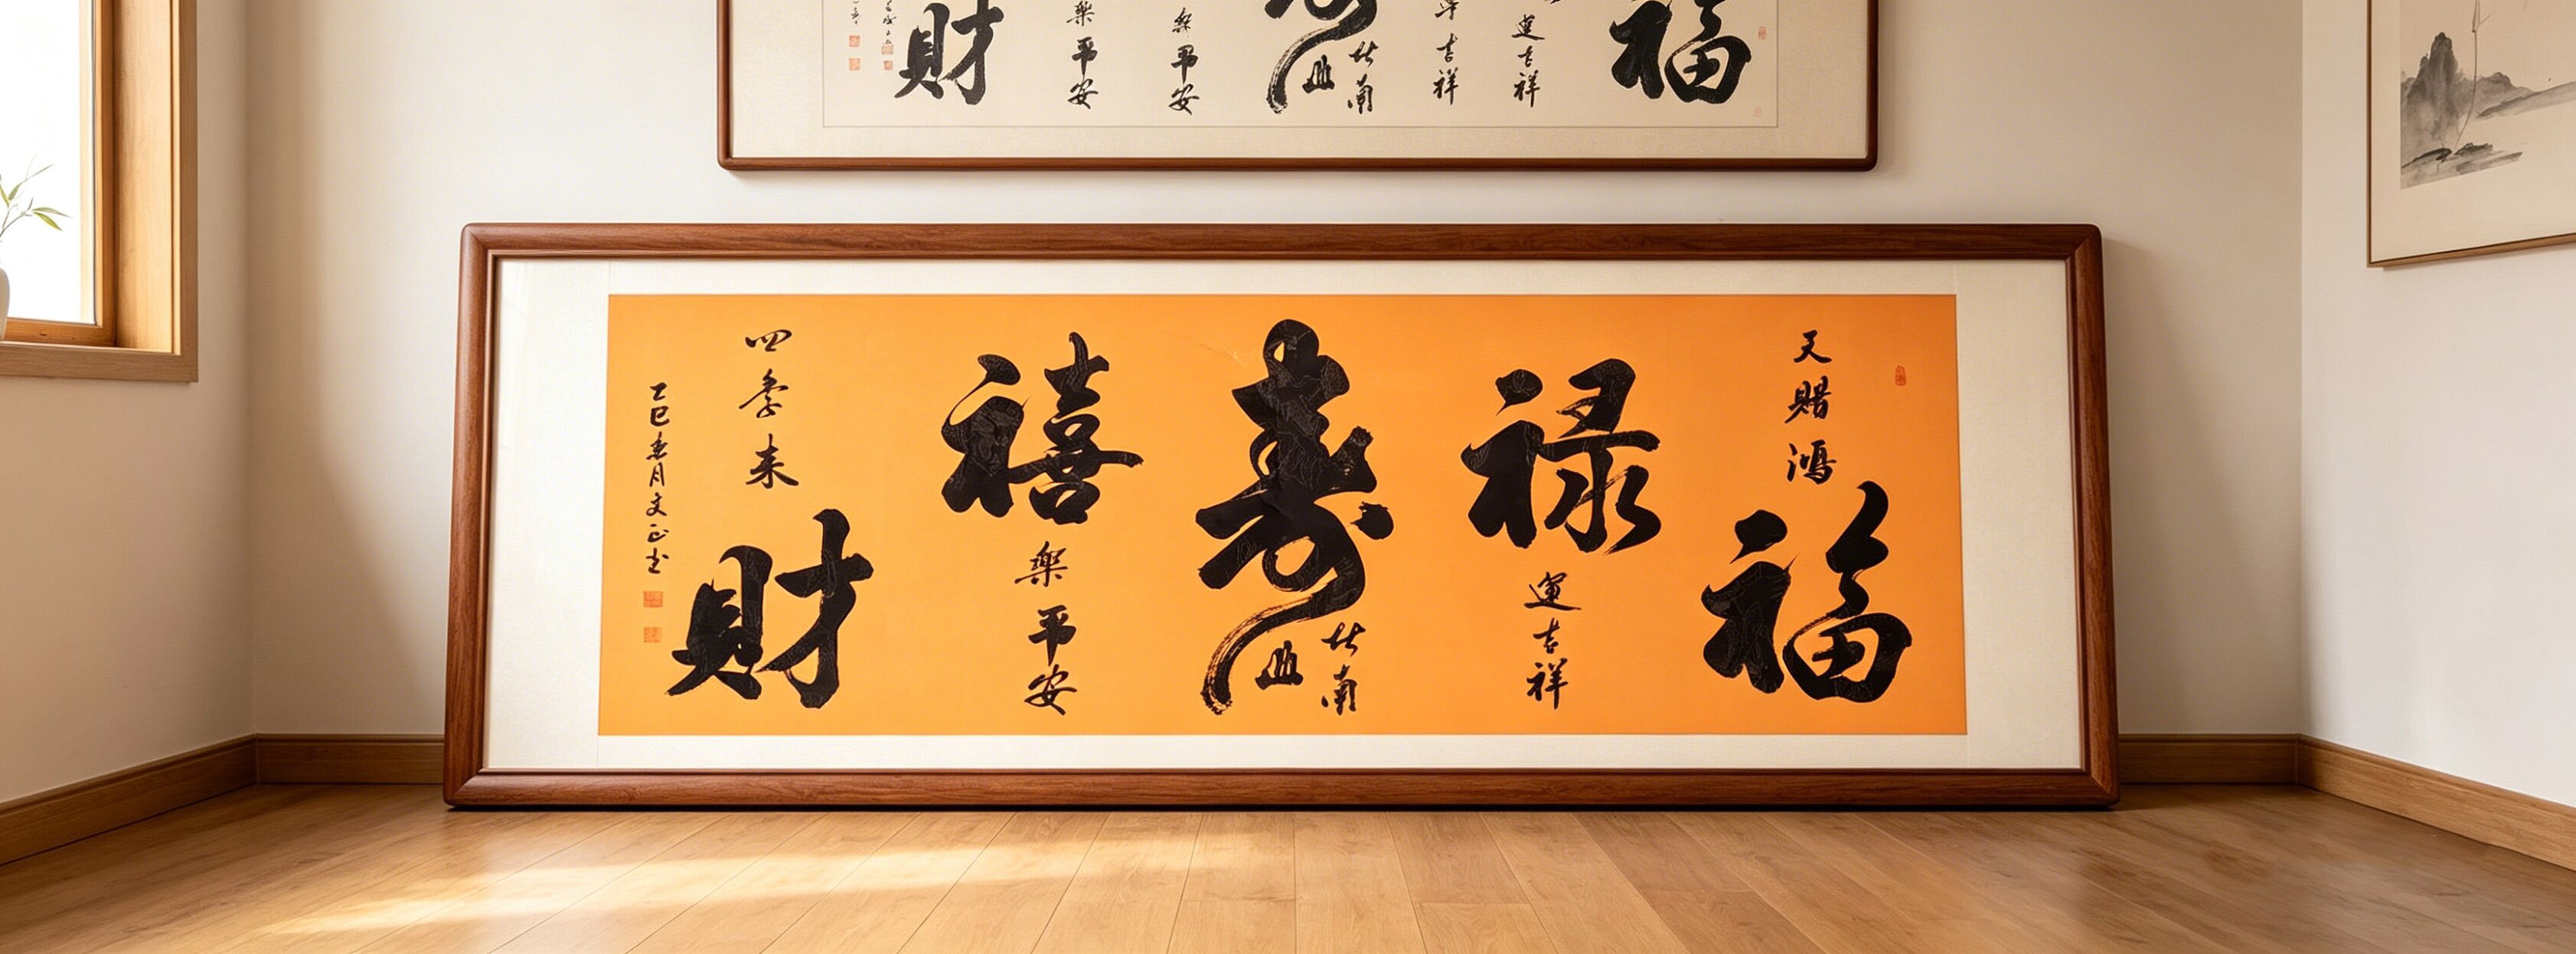 福
運吉祥
吉祥
比南
山
樂平安
樂平安
財
天賜鴻福
禄運吉祥
壽比南山
禧樂平安
四季来財
乙巳春月文正书